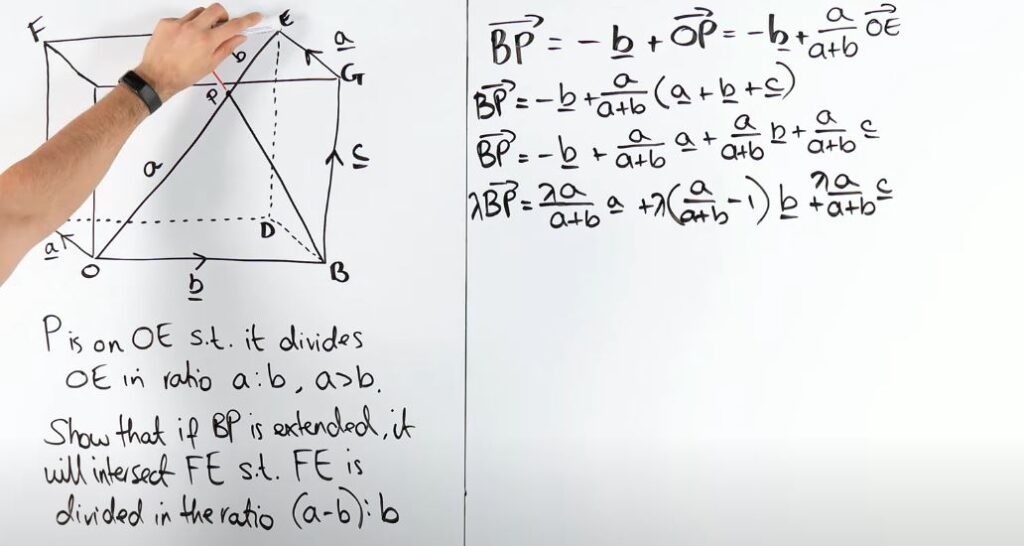 F
E
a
G
b
P
a
c
D
a
O
b
B
P is on OE s.t. it divides
OE in ratio a:b, a>b.
Show that if BP is extended, it
will intersect FE s.t. FE is
divided in the ratio (a-b):b
BP = -b + OP = -b + a/(a+b) OE
BP = -b + a/(a+b) (a + b + c)
BP = -b + a/(a+b) a + a/(a+b) b + a/(a+b) c
λBP = λa/(a+b) a + λ(a/(a+b) - 1) b + λa/(a+b) c